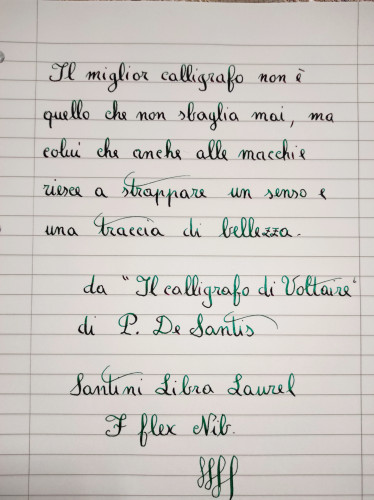 Il miglior calligrafo non è
quello che non sbaglia mai, ma
colui che anche alle macchie
riesce a strappare un senso e
una traccia di bellezza.
da "Il calligrafo di Voltaire"
di P. De Santis
Santini Libra Laurel
F flex Nib.